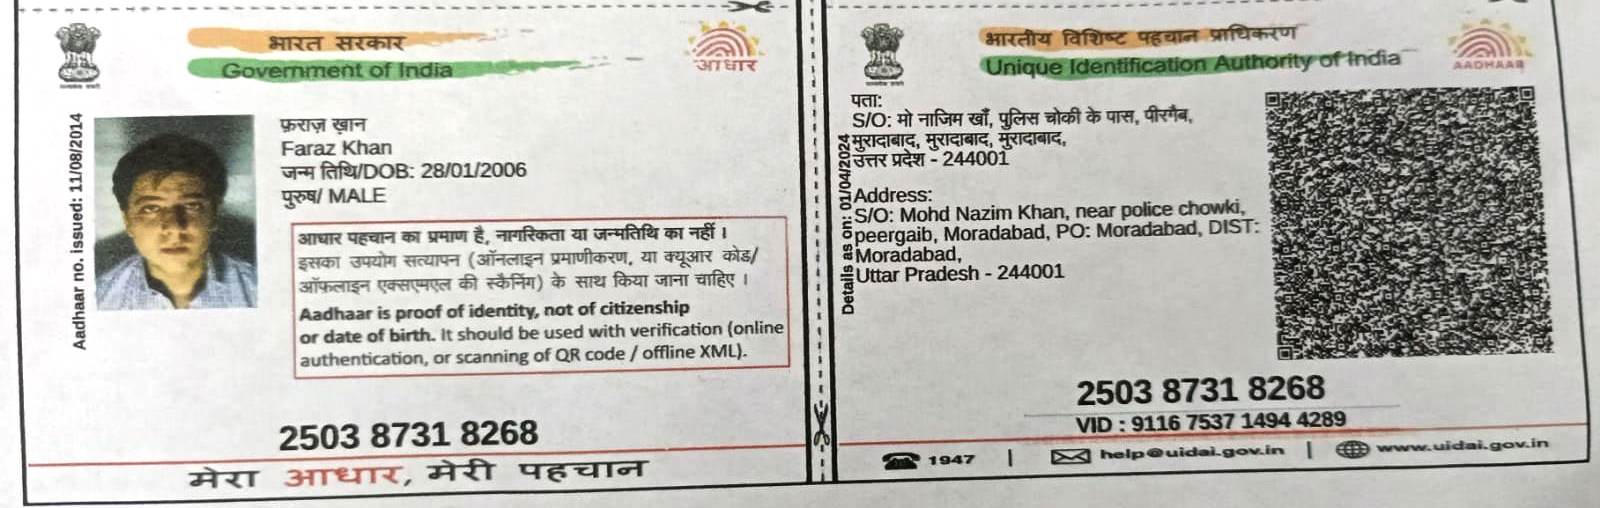 भारत सरकार
Government of India
आधार
Aadhaar no. issued: 11/08/2014
फ़राज़ ख़ान
Faraz Khan
जन्म तिथि/DOB: 28/01/2006
पुरुष/ MALE
आधार पहचान का प्रमाण है, नागरिकता या जन्मतिथि का नहीं ।
इसका उपयोग सत्यापन (ऑनलाइन प्रमाणीकरण, या क्यूआर कोड/
ऑफलाइन एक्सएमएल की स्कैनिंग) के साथ किया जाना चाहिए ।
Aadhaar is proof of identity, not of citizenship
or date of birth. It should be used with verification (online
authentication, or scanning of QR code / offline XML).
2503 8731 8268
मेरा आधार, मेरी पहचान
भारतीय विशिष्ट पहचान प्राधिकरण
Unique Identification Authority of India
AADHAAR
Details as on: 01/04/2024
पता:
S/O: मो नाजिम खाँ, पुलिस चोकी के पास, पीरगैब,
मुरादाबाद, मुरादाबाद, मुरादाबाद,
उत्तर प्रदेश - 244001
Address:
S/O: Mohd Nazim Khan, near police chowki,
peergaib, Moradabad, PO: Moradabad, DIST:
Moradabad,
Uttar Pradesh - 244001
2503 8731 8268
VID : 9116 7537 1494 4289
1947 | help@uidai.gov.in | www.uidai.gov.in